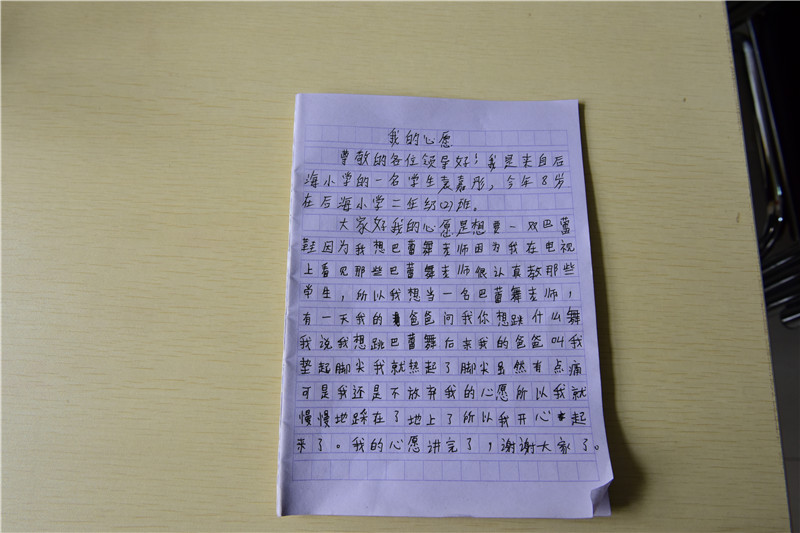 我的心愿
尊敬的各位领导好！我是来自后
海小学的一名学生袁嘉彤，今年8岁
在后海小学二年级(2)班。
大家好我的心愿是想要一双巴蕾
鞋因为我想巴蕾舞老师因为我在电视
上看见那些巴蕾舞老师很认真教那些
学生，所以我想当一名巴蕾舞老师，
有一天我的爸爸问我你想跳什么舞
我说我想跳巴蕾舞后来我的爸爸叫我
垫起脚尖我就垫起了脚尖虽然有点痛
可是我还是不放弃我的心愿所以我就
慢慢地踩在了地上了所以我开心起
来了。我的心愿讲完了，谢谢大家了。